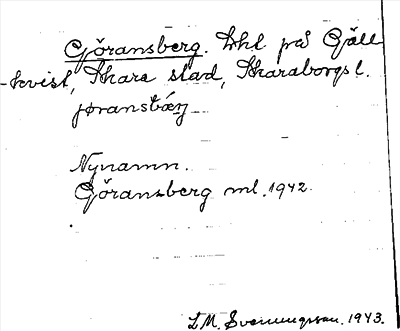 Göransberg. Lht på Gäll
-kvist, Skara stad, Skaraborgs l.
jøransbærj
Nynamn.
Göransberg ml. 1942.
L M. Svenungsson. 1943.